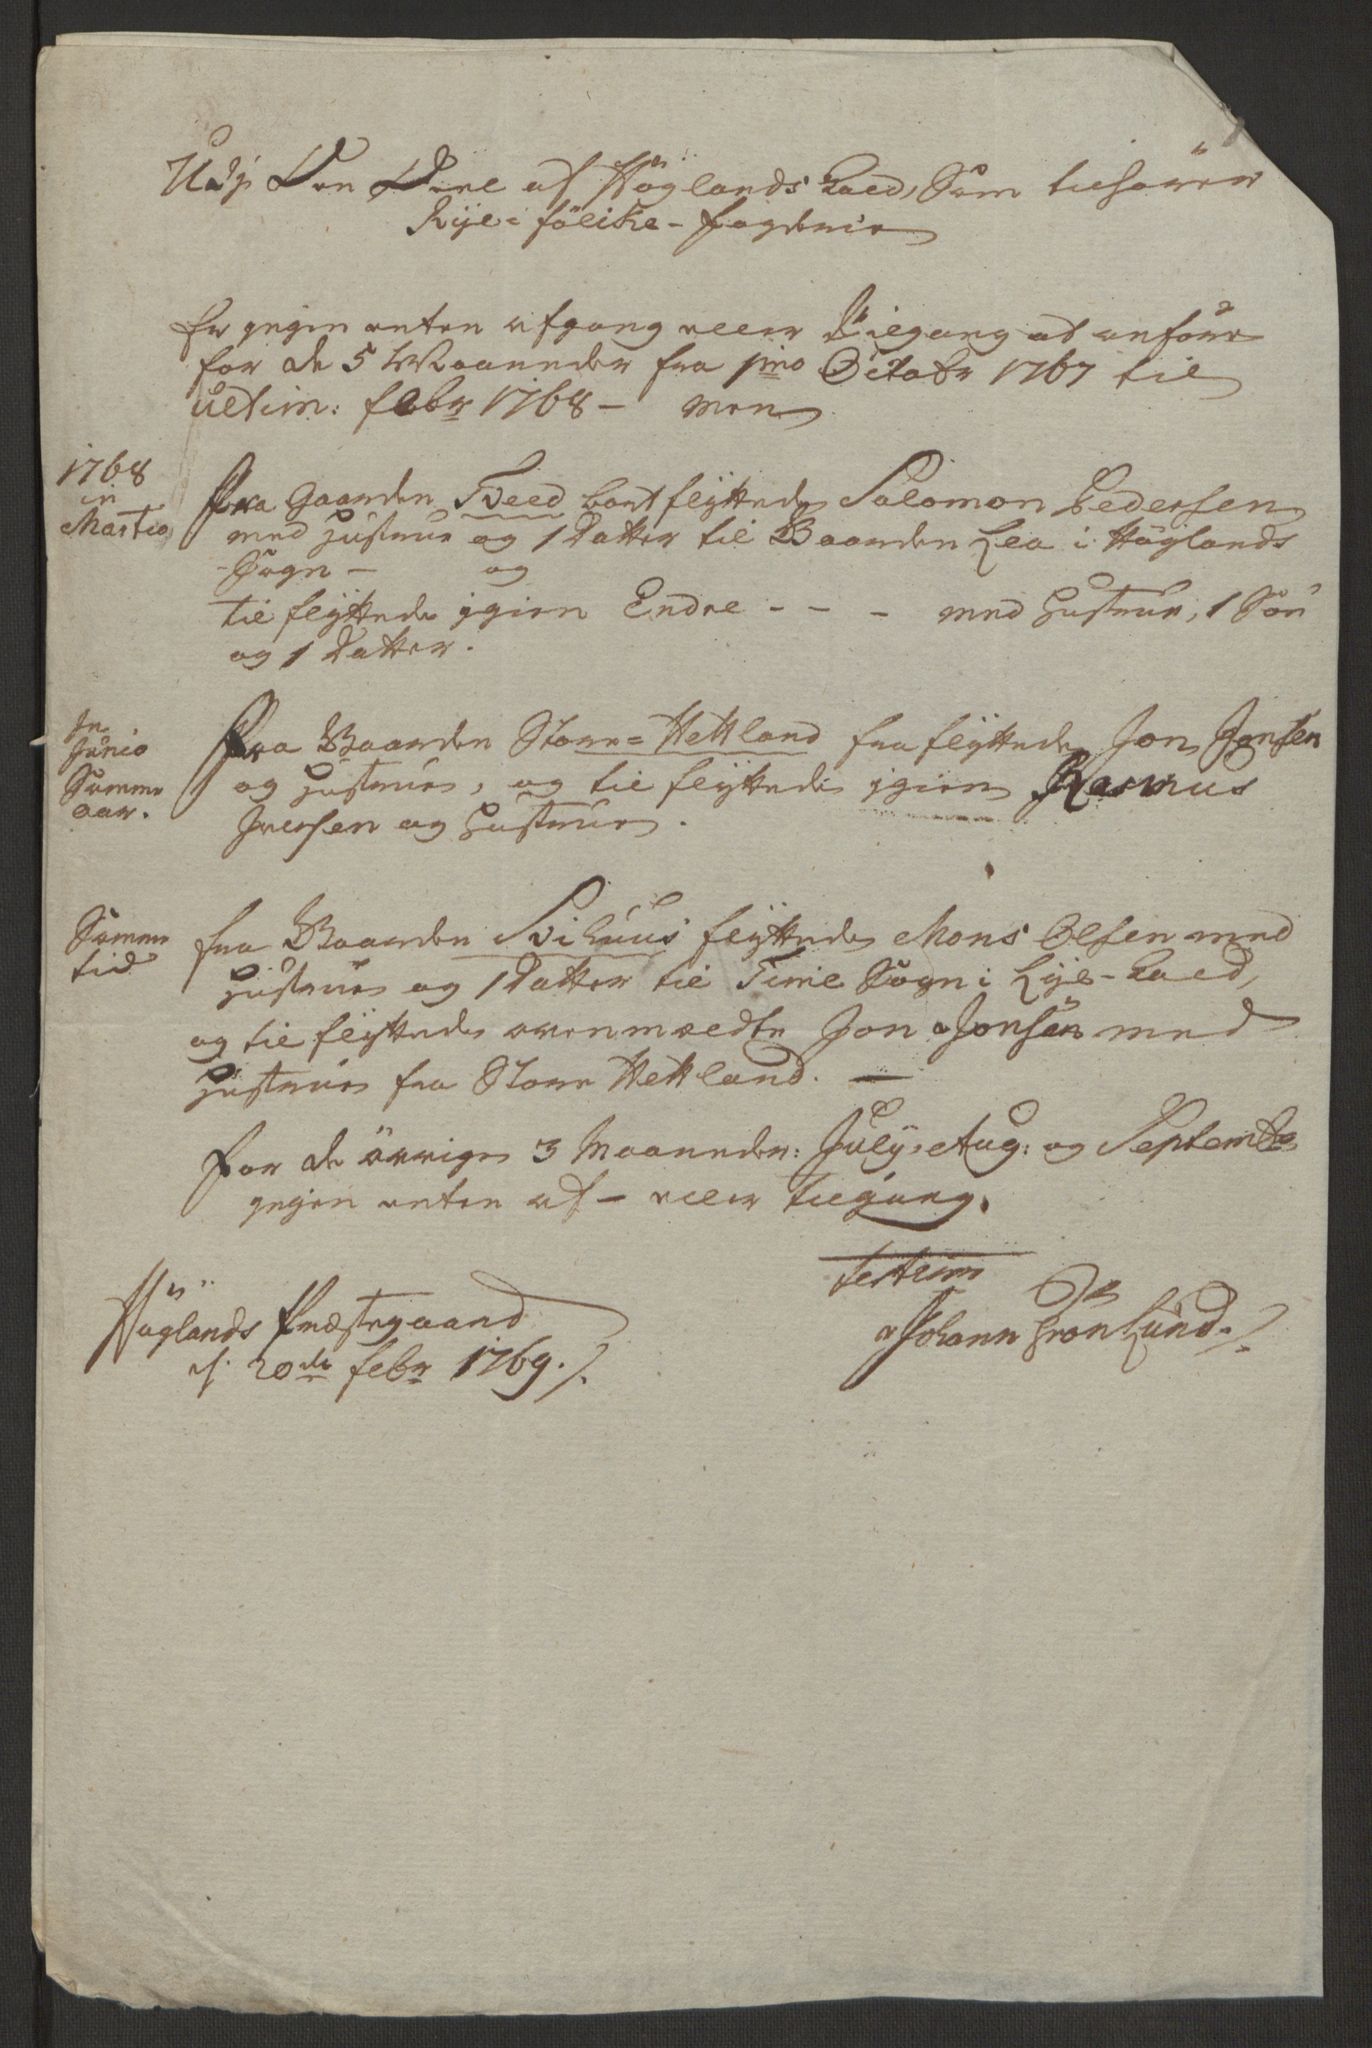 Udj Den Deel af Höglands Gield, Som tilhörer
Ryefölcke-Fogderie
Er gegen enten afgang eller Tilgang at anföre
for de 5 Maaneder fra 1mo Octobr 1767 til
ultim: Febr 1768 - men
1768
in
Martio
Fra Gaarden Tveed bortflyttede Salomon Pedersen
med Hustrue og 1 Datter til Gaarden Lea i Höglands
Sogn - og
tilflyttede igien Endre - - - med Hustrue, 1 Sön
og 1 Datter.
In
Junio
Samme
aar.
Fra Gaarden Store=Hettland fraflyttede Jon Jonsen
og Hustrue, og tilflyttede igien Rasmus
Iversen og Hustrue.
Samme
tid
fra Gaarden Svihuus flyttede Mons Olsen med
Hustrue og 1 Datter til Time Sogn i Lye-Gield,
og tilflyttede ovenmeldte Jon Jonsen med
Hustrue fra Store Hettland. —
For de övrige 3 Maaneder: July, Aug: og Septembr
gegen enten af- eller tilgang.
testerer
Höglands Præstegaard
d. 20de Febr 1769./.
Johann Grönlund./.